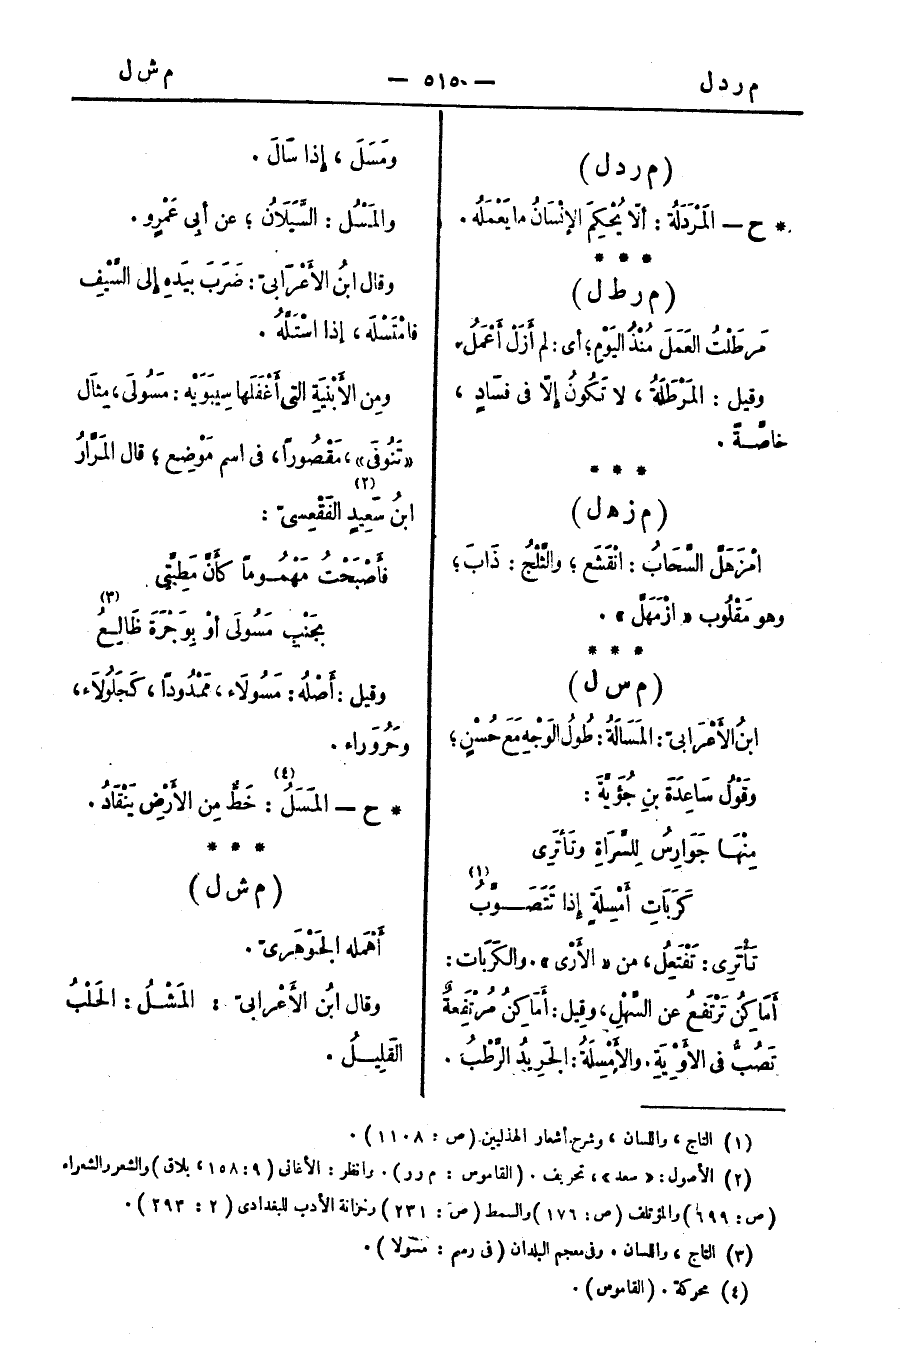 م ر د ل
— ٥١٥٠ —
م ش ل
( م ر د ل )
* ح — المَرْدَلَة : ألّا يُحْكِمَ الإنْسَانُ ما يَعْمَلُه .
* * *
( م ر ط ل )
مَرطَلْتُ العَمَلَ مُنْذُ اليَوْمِ ؛ أى : لم أَزَلْ أَعْمَلُ .
وقيل : المَرْطَلَةُ ، لا تَكُونُ إلّا فى فَسَادٍ ،
خاصَّةً .
* * *
( م ز ه ل )
امْزَهَلَّ السَّحَابُ : انْقَشَع ؛ والثَّلْجُ : ذَابَ ؛
وهو مَقْلُوب « ازْمَهَلَّ » .
* * *
( م س ل )
ابنُ الأَعْرَابىّ : المَسَالَةُ : طُولُ الوَجْهِ مَعَ حُسْنٍ ؛
وقَوْلُ سَاعِدَةَ بنِ جُؤَيَّةَ :
مِنْهَا جَوَارِسُ لِلسَّرَاةِ وتَأْتَرِى
كَرَبَاتِ أَمْسِلَةٍ إذا تَتَصَوَّبُ (١)
تَأْتَرِى : تَفْتَعِلُ ، من « الأَرْى » . والكَرَبَات :
أَمَاكِنُ تَرْتَفِعُ عن السَّهْلِ ، وقِيل : أَمَاكِنُ مُرْتَفِعةٌ
تَصُبُّ فى الأَوْدِيَةِ . والأَمْسِلَةُ : الجَرِيدُ الرَّطْبُ .
ومَسَلَ ، إذا سَالَ .
والمَسْلُ : السَّيَلَانُ ؛ عن أَبِى عَمْرٍو .
وقال ابنُ الأَعْرَابىّ : ضَرَبَ بيَدِهِ إلى السَّيْفِ
فامْتَسْلَه ، إذا اسْتَلَّهُ .
ومِن الأَبْنِيَةِ التى أَغْفَلَها سِيبَوَيْه : مَسُولَى ، مِثال
« تَنُوفَى » ، مَقْصُوراً ، فى اسم مَوْضِع ؛ قال المَرّارُ
ابنُ سَعِيدٍ الفَقْعسِىّ (٢) :
فَأَصْبَحْتُ مَهْمُوماً كأَنَّ مَطِيَّتِى
بجَنْبِ مَسُولَى أوْ بِوَجْرَةَ ظَالِعُ (٣)
وقيل : أَصْلُهُ : مَسُولَاء ، مَمْدُودًا ، كَجَلُولَاء ،
وحَرُورَاء .
* ح — المَسَلُ (٤) : خَطٌّ مِن الأَرْضِ يَنْقَادُ .
* * *
( م ش ل )
أَهْمَله الجَوْهَرِىّ .
وقال ابنُ الأَعْرابىّ : المَشْلُ : الحَلْبُ
القَلِيلُ .
(١) التاج ، واللسان ، وشرح أشعار الهذليين (ص : ١١٠٨) .
(٢) الأصول : « سعد » ، تحريف . (القاموس : م ر ر) . وانظر : الأغانى (٩ : ١٥٨ ، بلاق) والشعر والشعراء
(ص : ٦٩٩) والمؤتلف (ص : ١٧٦) والسمط (ص : ٢٣١) وخزانة الأدب للبغدادى (٢ : ٢٩٣) .
(٣) التاج ، واللسان . وفى معجم البلدان (فى رسم : مسولا) .
(٤) محركة . (القاموس) .